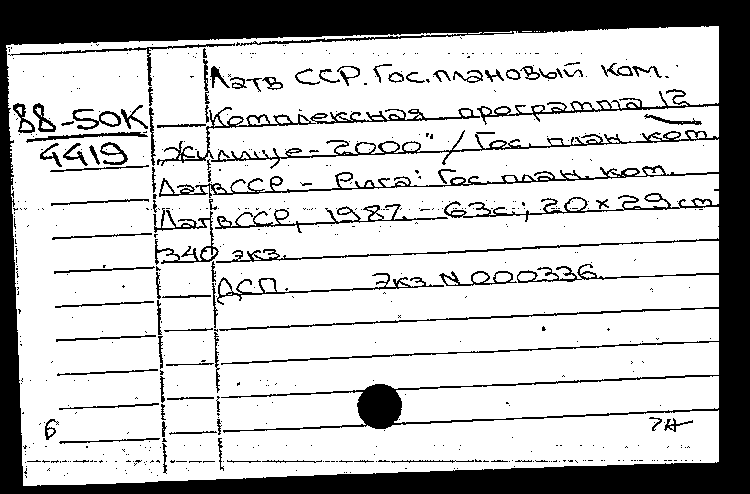 Латв ССР. Гос. плановый ком.
88-50К
4419
Комплексная программа 12
„Жилище-2000" / Гос. план. ком.
ЛатвССР. - Рига: Гос. план. ком.
ЛатвССР, 1987. - 63с.; 20×29 см
340 экз.
ДСП. Экз. N 000336.
6